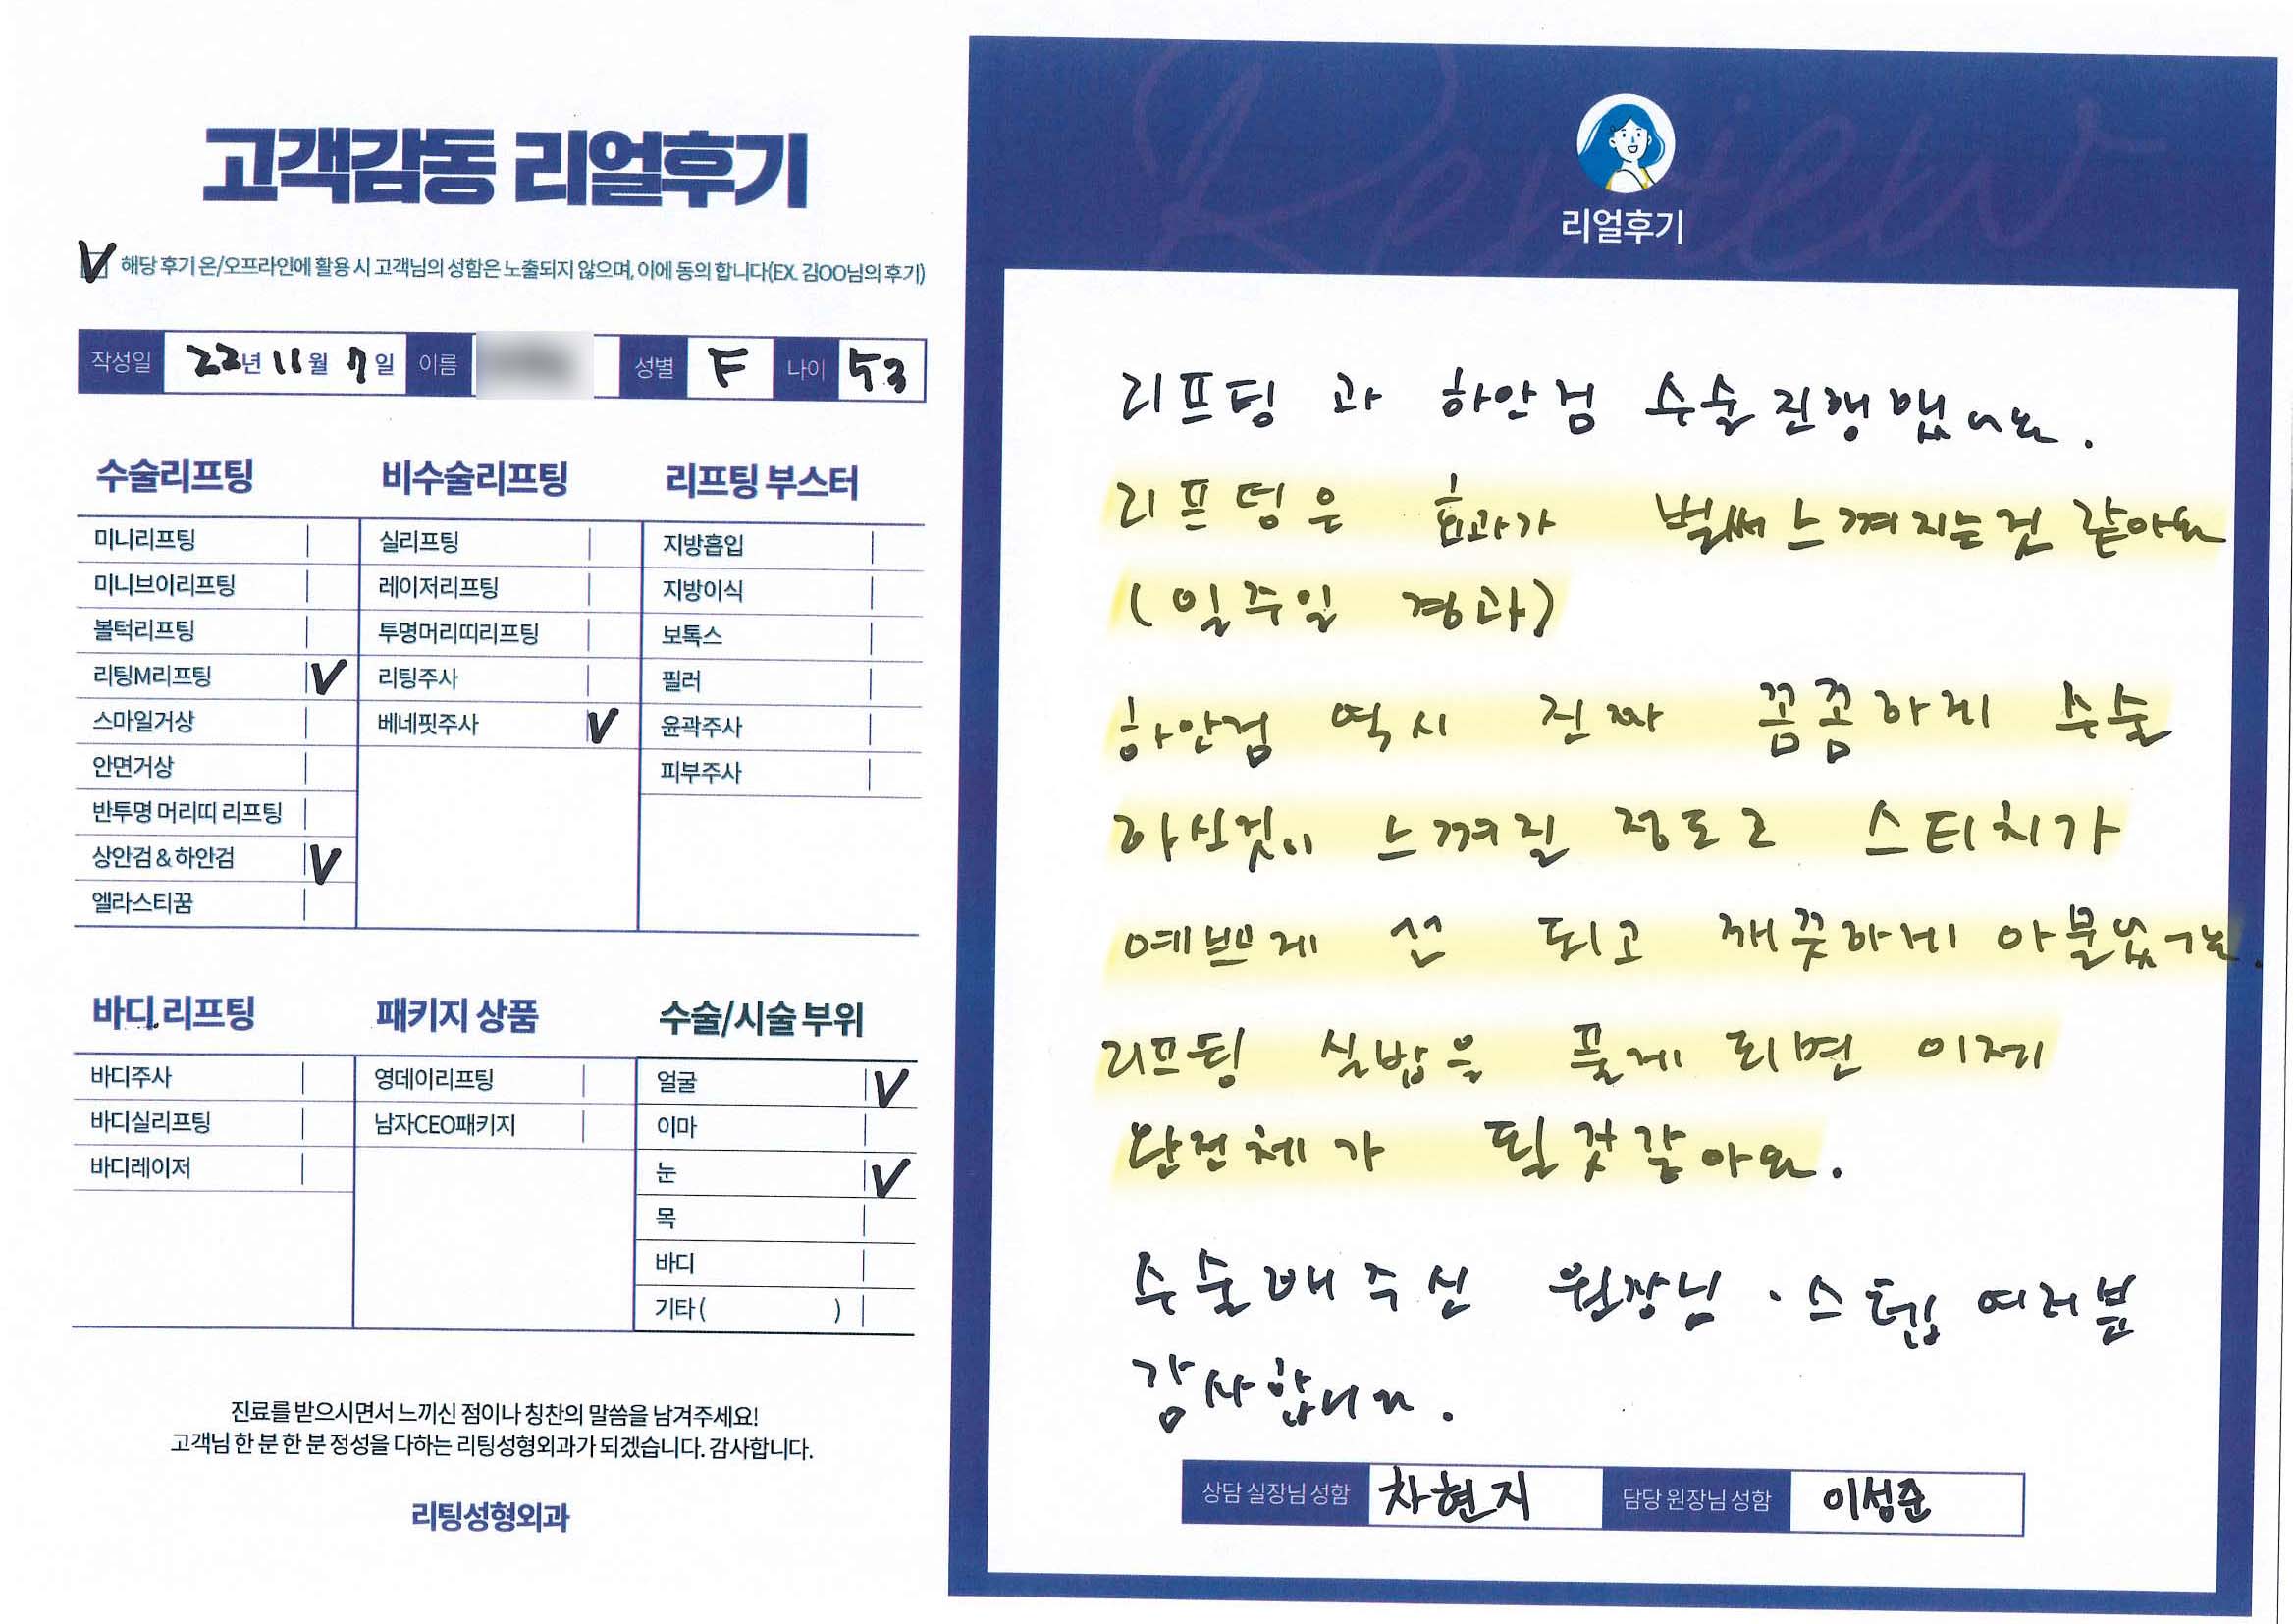 고객감동 리얼후기
V 해당 후기 온/오프라인에 활용 시 고객님의 성함은 노출되지 않으며, 이에 동의 합니다(EX. 김OO님의 후기)
작성일 22년 11월 7일 이름 성별 F 나이 53
수술리프팅
미니리프팅
미니브이리프팅
볼턱리프팅
리팅M리프팅 V
스마일거상
안면거상
반투명 머리띠 리프팅
상안검 & 하안검 V
엘라스티꿈
비수술리프팅
실리프팅
레이저리프팅
투명머리띠리프팅
리팅주사
베네핏주사 V
리프팅 부스터
지방흡입
지방이식
보톡스
필러
윤곽주사
피부주사
바디 리프팅
바디주사
바디실리프팅
바디레이저
패키지 상품
영데이리프팅
남자CEO패키지
수술/시술 부위
얼굴 V
이마
눈 V
목
바디
기타 ( )
진료를 받으시면서 느끼신 점이나 칭찬의 말씀을 남겨주세요!
고객님 한 분 한 분 정성을 다하는 리팅성형외과가 되겠습니다. 감사합니다.
리팅성형외과
Review
리얼후기
리프팅 과 하안검 수술진행했어요.
리프팅은 효과가 벌써느껴지는것 같아요
(일주일 경과)
하안검 역시 진짜 꼼꼼하게 수술
하신것이 느껴질 정도로 스티치가
예쁘게 선 되고 깨끗하게 아물었구요.
리프팅 실밥을 풀게 되면 이제
완전체가 될것같아요.
수술해주신 원장님 · 스텝 여러분
감사합니다.
상담 실장님 성함 차현지 담당 원장님 성함 이성준